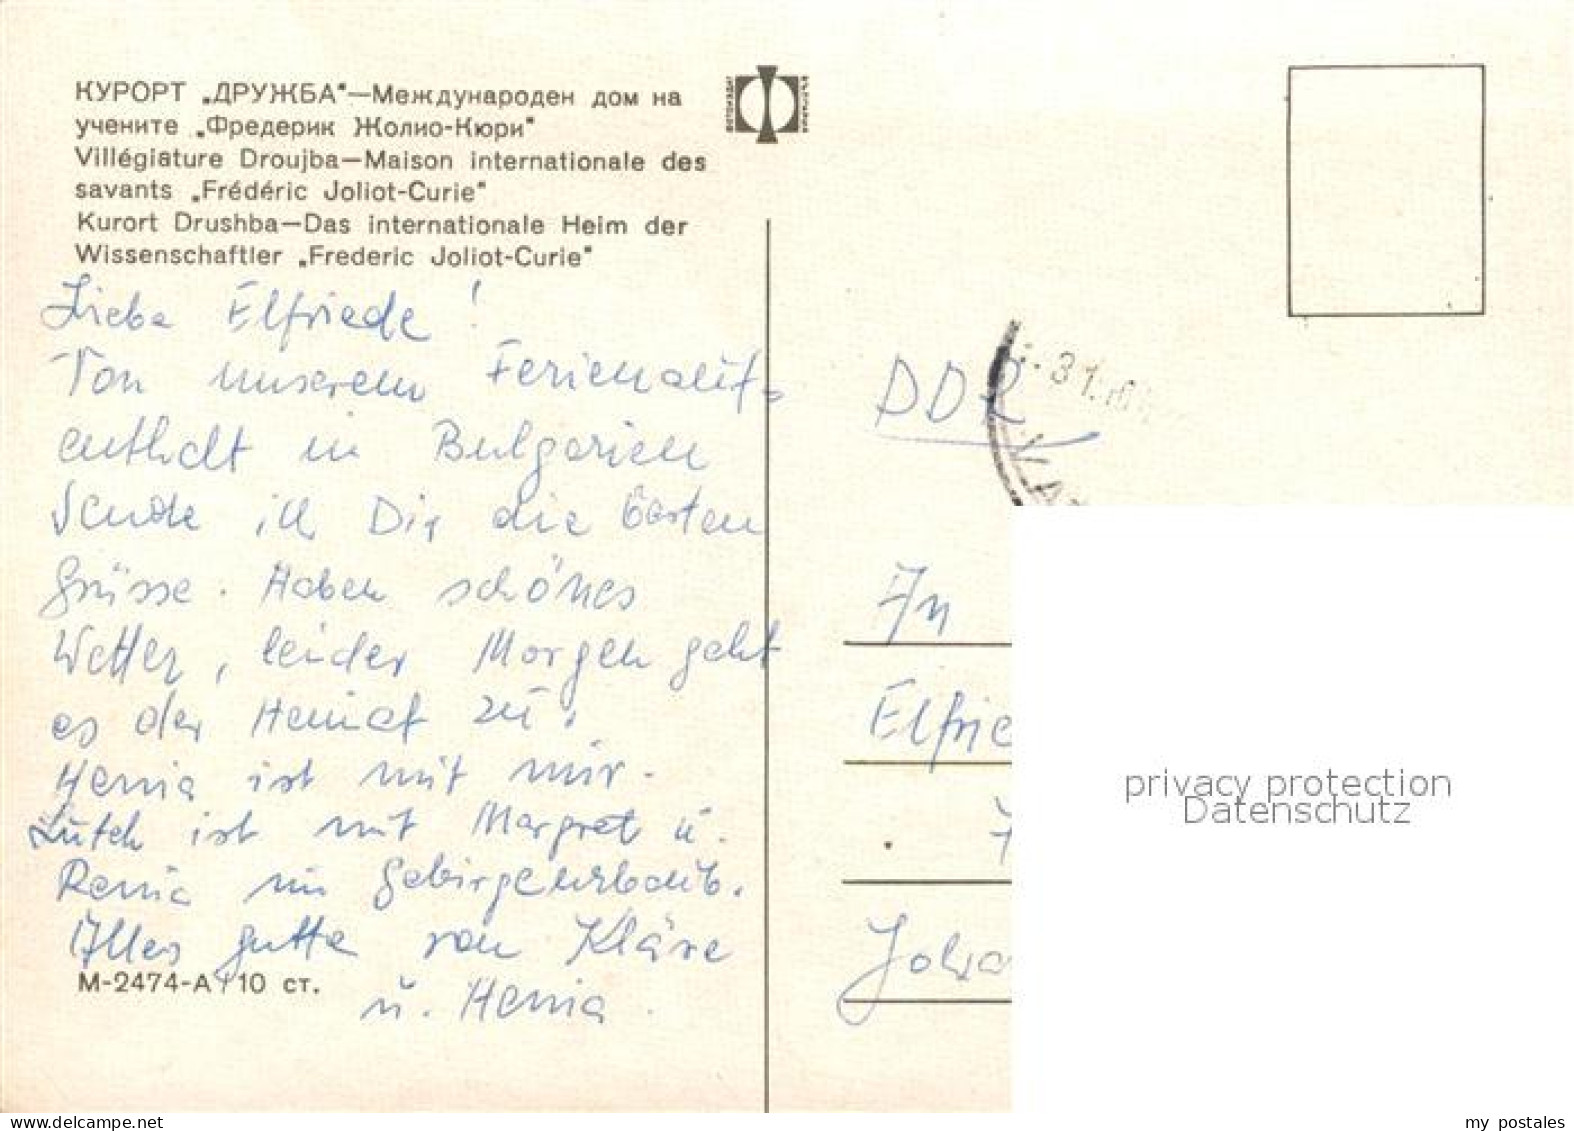 КУРОРТ „ДРУЖБА“—Международен дом на
учените „Фредерик Жолио-Кюри“
Villégiature Droujba—Maison internationale des
savants „Frédéric Joliot-Curie“
Kurort Drushba—Das internationale Heim der
Wissenschaftler „Frederic Joliot-Curie“
ФОТОИЗДАТ
БЪЛГАРИЯ
Liebe Elfriede!
Von unserem Ferienauf=
enthalt in Bulgarien
sende ich Dir die besten
Grüsse. Haben schönes
Wetter, leider Morgen geht
es der Heimat zu.
Henia ist mit mir.
ist mit Margret u.
Renia im Gebirgeurlaub.
Alles gutte von Kläre
u. Henia.
М-2474-А 10 ст.
DDR
An
Elfrie
7
Joha
privacy protection
Datenschutz
my postales